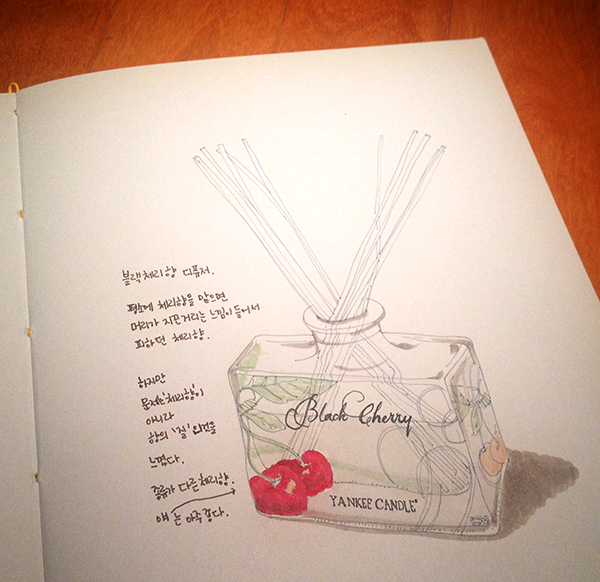 블랙체리향 디퓨저.
평소에 체리향을 맡으면
머리가 지끈거리는 느낌이 들어서
피하던 체리향.
하지만
문제는 '체리향'이
아니라
향의 '질' 인것을
느꼈다.
종류가 다른 체리향.
얘는 아주 좋다.
Black Cherry
YANKEE CANDLE®